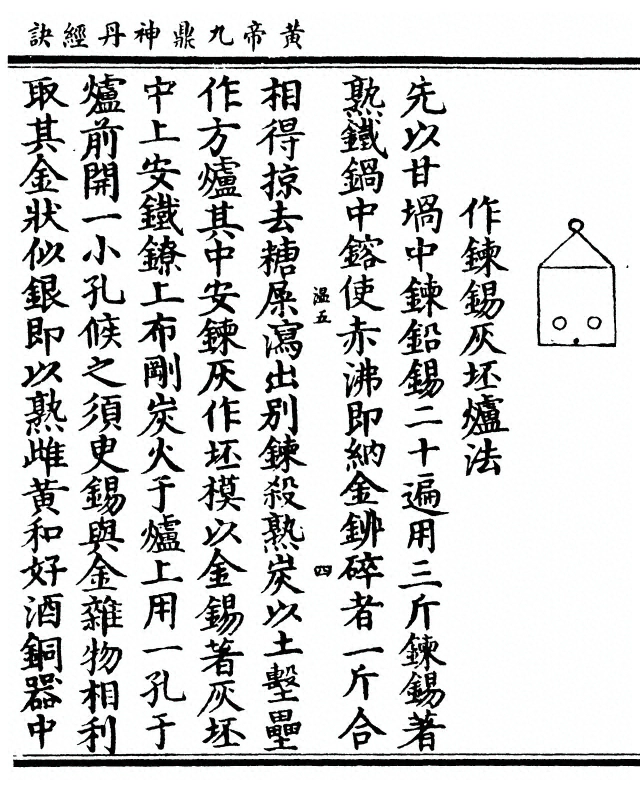 黃帝九鼎神丹經訣
作鍊錫灰坯爐法
先以甘堝中鍊鉛錫二十遍用三斤鍊錫著
熟鐵鍋中鎔使赤沸即納金鉚碎者一斤合
相得掠去糖屎瀉出別鍊殺熟炭以土墼壘
溫五
四
作方爐其中安鍊灰作坯模以金錫著灰坯
中上安鐵鐐上布剛炭火于爐上用一孔于
爐前開一小孔候之須臾錫與金雜物相利
取其金狀似銀即以熟雌黃和好酒銅器中